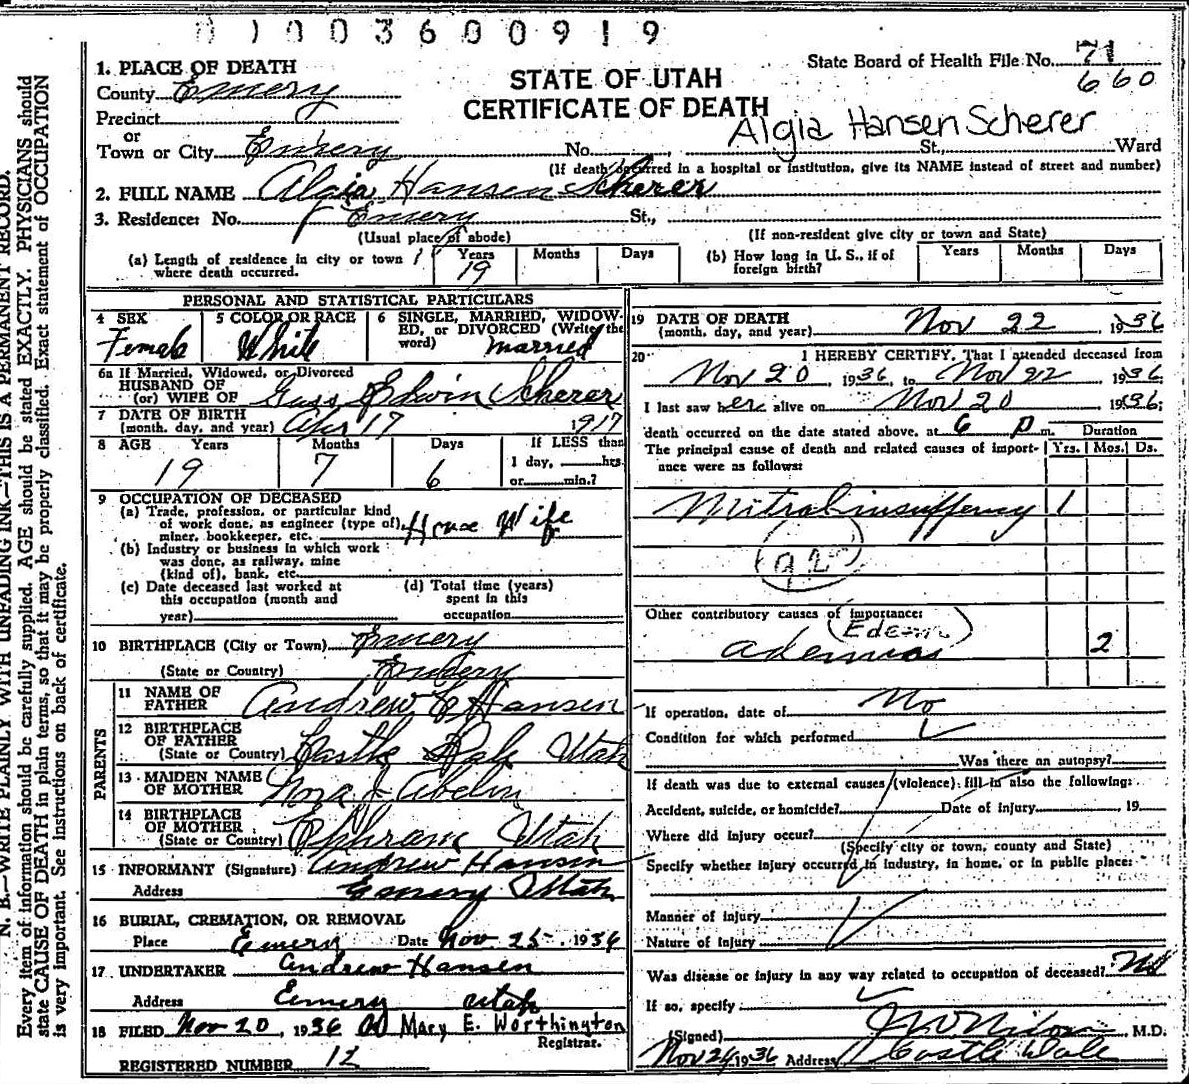 01003600919
State Board of Health File No. 71
660
STATE OF UTAH
CERTIFICATE OF DEATH
Algia Hansen Scherer
1. PLACE OF DEATH
County Emery
Precinct
or
Town or City Emery No. St., Ward
(If death occurred in a hospital or institution, give its NAME instead of street and number)
2. FULL NAME Algia Hansen Scherer
3. Residence: No. Emery St.,
(Usual place of abode) (If non-resident give city or town and State)
(a) Length of residence in city or town where death occurred. Years 19 Months Days
(b) How long in U. S., if of foreign birth? Years Months Days
PERSONAL AND STATISTICAL PARTICULARS
4 SEX Female
5 COLOR OR RACE White
6 SINGLE, MARRIED, WIDOWED, or DIVORCED (Write the word) Married
6a If Married, Widowed, or Divorced
HUSBAND OF
(or) WIFE OF Guss Edwin Scherer
7 DATE OF BIRTH
(month, day, and year) Apr 17 1917
8 AGE Years 19 Months 7 Days 6
If LESS than
1 day, hrs.
or min.?
9 OCCUPATION OF DECEASED
(a) Trade, profession, or particular kind
of work done, as engineer (type of),
miner, bookkeeper, etc. House Wife
(b) Industry or business in which work
was done, as railway, mine
(kind of), bank, etc.
(c) Date deceased last worked at
this occupation (month and
year)
(d) Total time (years)
spent in this
occupation
10 BIRTHPLACE (City or Town) Emery
(State or Country) Emery
PARENTS
11 NAME OF
FATHER Andrew C Hansen
12 BIRTHPLACE
OF FATHER
(State or Country) Castle Dale Utah
13 MAIDEN NAME
OF MOTHER Nora J Abelin
14 BIRTHPLACE
OF MOTHER
(State or Country) Ephram Utah
15 INFORMANT (Signature) Andrew Hansen
Address Emery Utah
16 BURIAL, CREMATION, OR REMOVAL
Place Emery Date Nov 25, 1936
17 UNDERTAKER Andrew Hansen
Address Emery Utah
18 FILED Nov 20, 1936 Mary E. Worthington
Registrar.
REGISTERED NUMBER 12
19 DATE OF DEATH
(month, day, and year) Nov 22 1936
20 I HEREBY CERTIFY, That I attended deceased from
Nov 20, 1936, to Nov 22 1936
I last saw her alive on Nov 20 1936;
death occurred on the date stated above, at 6 P m. Duration
The principal cause of death and related causes of importance were as follows: Yrs. Mos. Ds.
Mitral insuffency 1
92
Other contributory causes of importance:
(Edema)
2
If operation, date of No
Condition for which performed
Was there an autopsy?
If death was due to external causes (violence) fill in also the following:
Accident, suicide, or homicide? Date of injury 19
Where did injury occur?
(Specify city or town, county and State)
Specify whether injury occurred in industry, in home, or in public place:
Manner of injury
Nature of injury
Was disease or injury in any way related to occupation of deceased? No
If so, specify
(Signed) M.D.
Nov 24 1936 Address Castle Dale
N. B.—WRITE PLAINLY WITH UNFADING INK—THIS IS A PERMANENT RECORD.
Every item of information should be carefully supplied. AGE should be stated EXACTLY. PHYSICIANS should
state CAUSE OF DEATH in plain terms, so that it may be properly classified. Exact statement of OCCUPATION
is very important. See instructions on back of certificate.